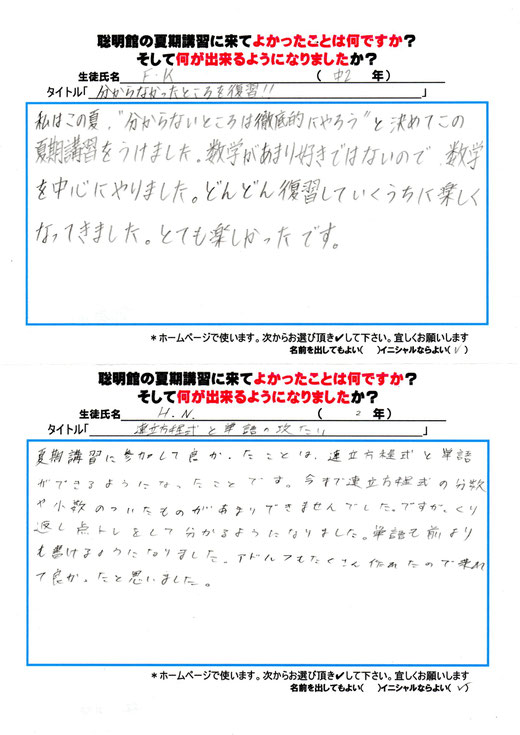 聡明館の夏期講習に来てよかったことは何ですか？
そして何が出来るようになりましたか？
生徒氏名 F.K （ 中2 年）
タイトル「 分からなかったところを復習!! 」
私はこの夏、"分からないところは徹底的にやろう"と決めてこの
夏期講習をうけました。数学があまり好きではないので、数学
を中心にやりました。どんどん復習していくうちに楽しく
なってきました。とても楽しかったです。
＊ホームページで使います。次からお選び頂き✔して下さい。宜しくお願いします
名前を出してもよい（ ）イニシャルならよい（✓）
聡明館の夏期講習に来てよかったことは何ですか？
そして何が出来るようになりましたか？
生徒氏名 H.N. （ 2 年）
タイトル「 連立方程式と単語の 」
夏期講習に参加して良かったことは、連立方程式と単語
ができるようになったことです。今まで連立方程式の分数
や小数のついたものがあまりできませんでした。ですが、くり
返し点トレをして分かるようになりました。単語も前より
も書けるようになりました。 もたくさん作れたので来れ
て良かったと思いました。
＊ホームページで使います。次からお選び頂き✔して下さい。宜しくお願いします
名前を出してもよい（ ）イニシャルならよい（✓）